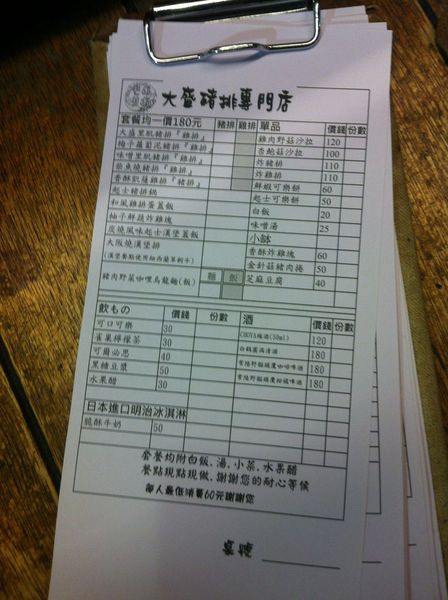 大盛豬排專門店
套餐均一價180元 豬排 雞排 單品 價錢 份數
大盛里肌豬排『雞排』 雞肉野菇沙拉 120
梅子蘿蔔泥豬排『雞排』 杏鮑菇沙拉 100
味噌里肌豬排『雞排』 炸豬排 110
柴魚燒豬排『雞排』 炸雞排 110
香酥凱薩雞排『豬排』 鮮蝦可樂餅 60
起士豬排鍋 起士可樂餅 50
和風雞排蛋蓋飯 白飯 20
柚子鮮蔬炸雞塊 味噌湯 25
炭燒風味起士漢堡排 小缽
大阪燒漢堡排 香酥炸雞塊 60
金針菇豬肉捲 50
豬肉野菜咖哩烏龍麵(飯) 麵 飯 芝麻豆腐 40
飲もの 價錢 份數 酒 價錢 份數
可口可樂 30 CHOYA梅酒(50ml) 120
雀巢檸檬茶 30 180
可爾必思 40 180
黑糖豆漿 50 180
水果醋 30
日本進口明治冰淇淋
脆酥牛奶 50
套餐均附白飯、湯、小菜、水果醋
餐點現點現做，謝謝您的耐心等候
每人最低消費60元謝謝您
桌號